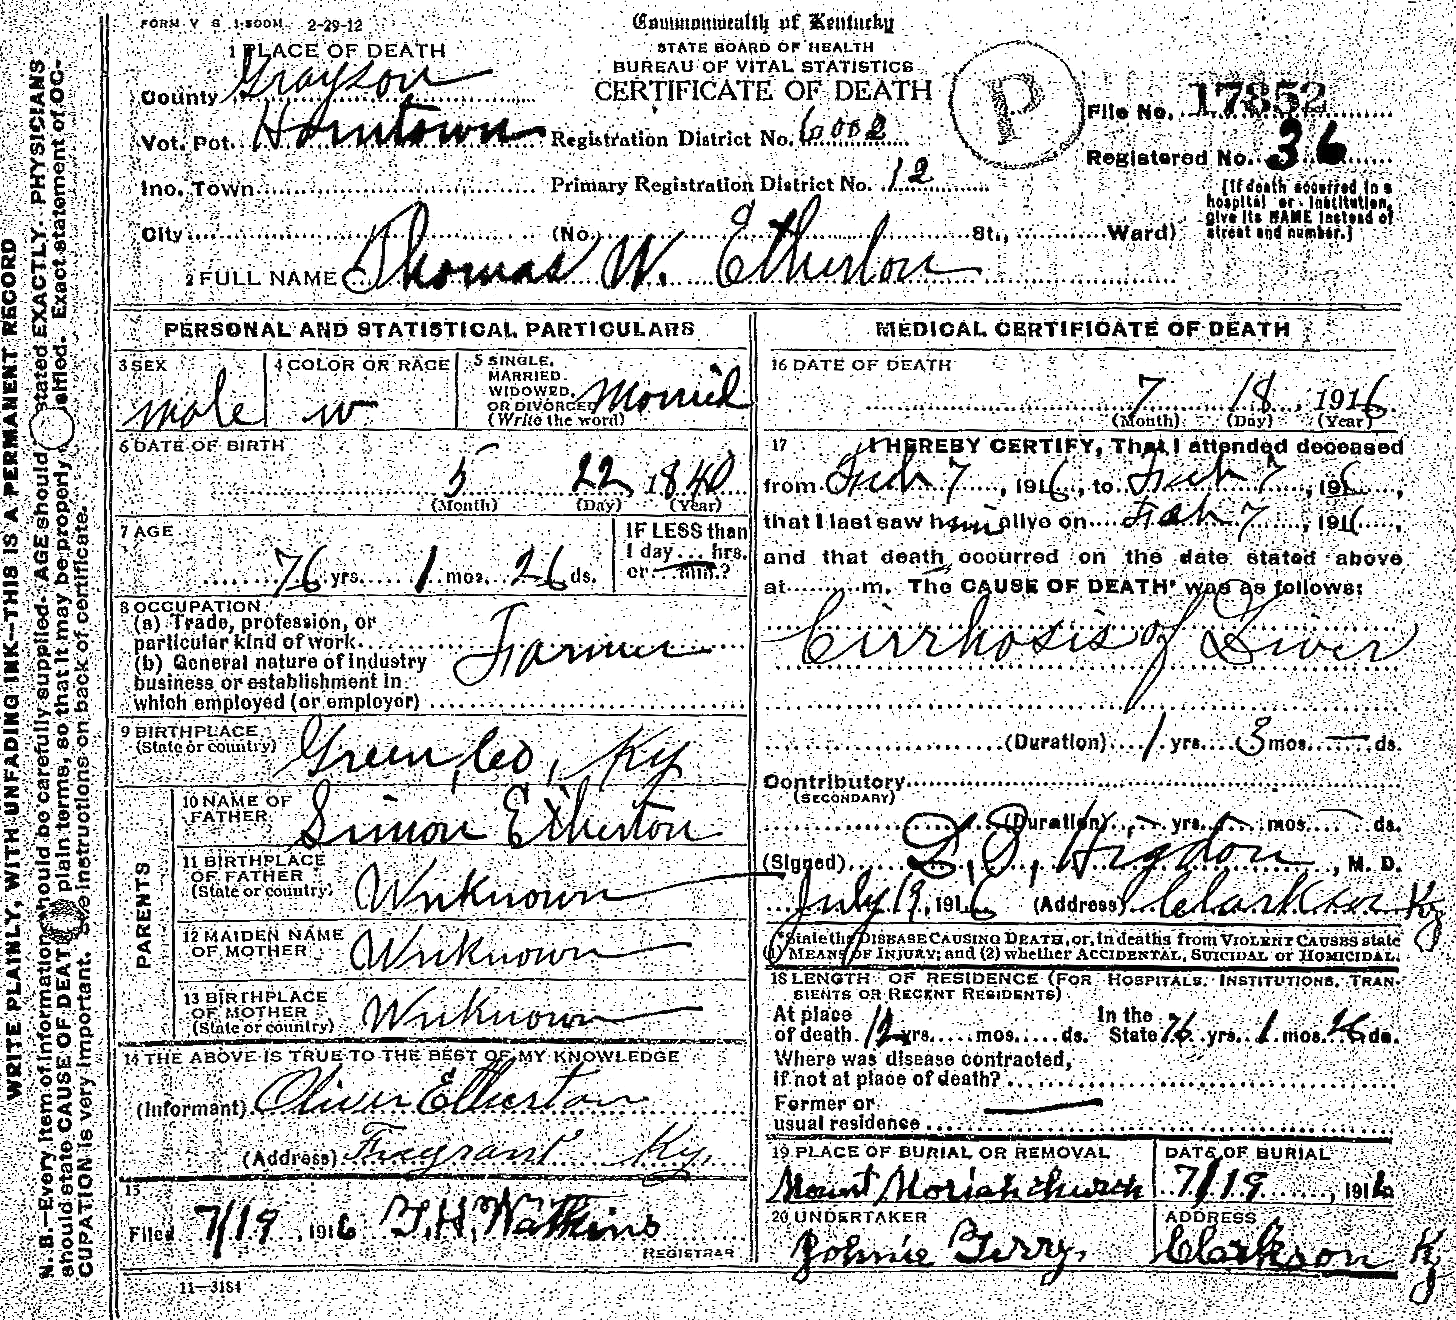 FORM V S 1-500M 2-29-12
Commonwealth of Kentucky
STATE BOARD OF HEALTH
BUREAU OF VITAL STATISTICS
CERTIFICATE OF DEATH
1 PLACE OF DEATH
County Grayson
Vot. Pct. Horntown Registration District No. 6002
Ino. Town Primary Registration District No. 12
City (No. St., Ward)
P
File No. 17852
Registered No. 36
[If death occurred in a
hospital or institution,
give its NAME instead of
street and number.]
2 FULL NAME Thomas W. Etherton
PERSONAL AND STATISTICAL PARTICULARS
3 SEX male
4 COLOR OR RACE w
5 SINGLE,
MARRIED.
WIDOWED,
OR DIVORCED Married
(Write the word)
6 DATE OF BIRTH
5 22 1840
(Month) (Day) (Year)
7 AGE
76 yrs. 1 mos. 26 ds.
IF LESS than
1 day ... hrs.
or ... min.?
8 OCCUPATION
(a) Trade, profession, or
particular kind of work
(b) General nature of industry
business or establishment in
which employed (or employer)
Farmer
9 BIRTHPLACE
(State or country) Green, Co, Ky
PARENTS
10 NAME OF
FATHER Simon Etherton
11 BIRTHPLACE
OF FATHER
(State or country) Unknown
12 MAIDEN NAME
OF MOTHER Unknown
13 BIRTHPLACE
OF MOTHER
(State or country) Unknown
14 THE ABOVE IS TRUE TO THE BEST OF MY KNOWLEDGE
(Informant) Oliver Etherton
(Address) Ky.
15
Filed 7/19, 1916 T.H. Watkins
REGISTRAR
11-3184
MEDICAL CERTIFICATE OF DEATH
16 DATE OF DEATH
7 18, 1916
(Month) (Day) (Year)
17 I HEREBY CERTIFY, That I attended deceased
from Feb 7, 1916, to Feb 7, 1916,
that I last saw him alive on Feb 7, 1916,
and that death occurred on the date stated above
at m. The CAUSE OF DEATH* was as follows:
Cirrhosis of Liver
(Duration) 1 yrs. 3 mos. — ds.
Contributory
(SECONDARY)
(Duration) — yrs. — mos. — ds.
(Signed) Higdon, M. D.
July 19, 1916 (Address) Clarkson Ky
*State the DISEASE CAUSING DEATH, or, in deaths from VIOLENT CAUSES state
MEANS OF INJURY; and (2) whether ACCIDENTAL, SUICIDAL or HOMICIDAL.
18 LENGTH OF RESIDENCE (FOR HOSPITALS, INSTITUTIONS, TRAN-
SIENTS OR RECENT RESIDENTS)
At place In the
of death 12 yrs. mos. ds. State 76 yrs. 1 mos. 26 ds.
Where was disease contracted,
if not at place of death?
Former or
usual residence —
19 PLACE OF BURIAL OR REMOVAL
Mount Moriah church
DATE OF BURIAL
7/19, 1916
20 UNDERTAKER
Johnie Terry.
ADDRESS
Clarkson Ky
WRITE PLAINLY, WITH UNFADING INK—THIS IS A PERMANENT RECORD
N. B.—Every item of information should be carefully supplied. AGE should stated EXACTLY. PHYSICIANS
should state CAUSE OF DEATH plain terms, so that it may be properly classified. Exact statement of OC-
CUPATION is very important. See instructions on back of certificate.